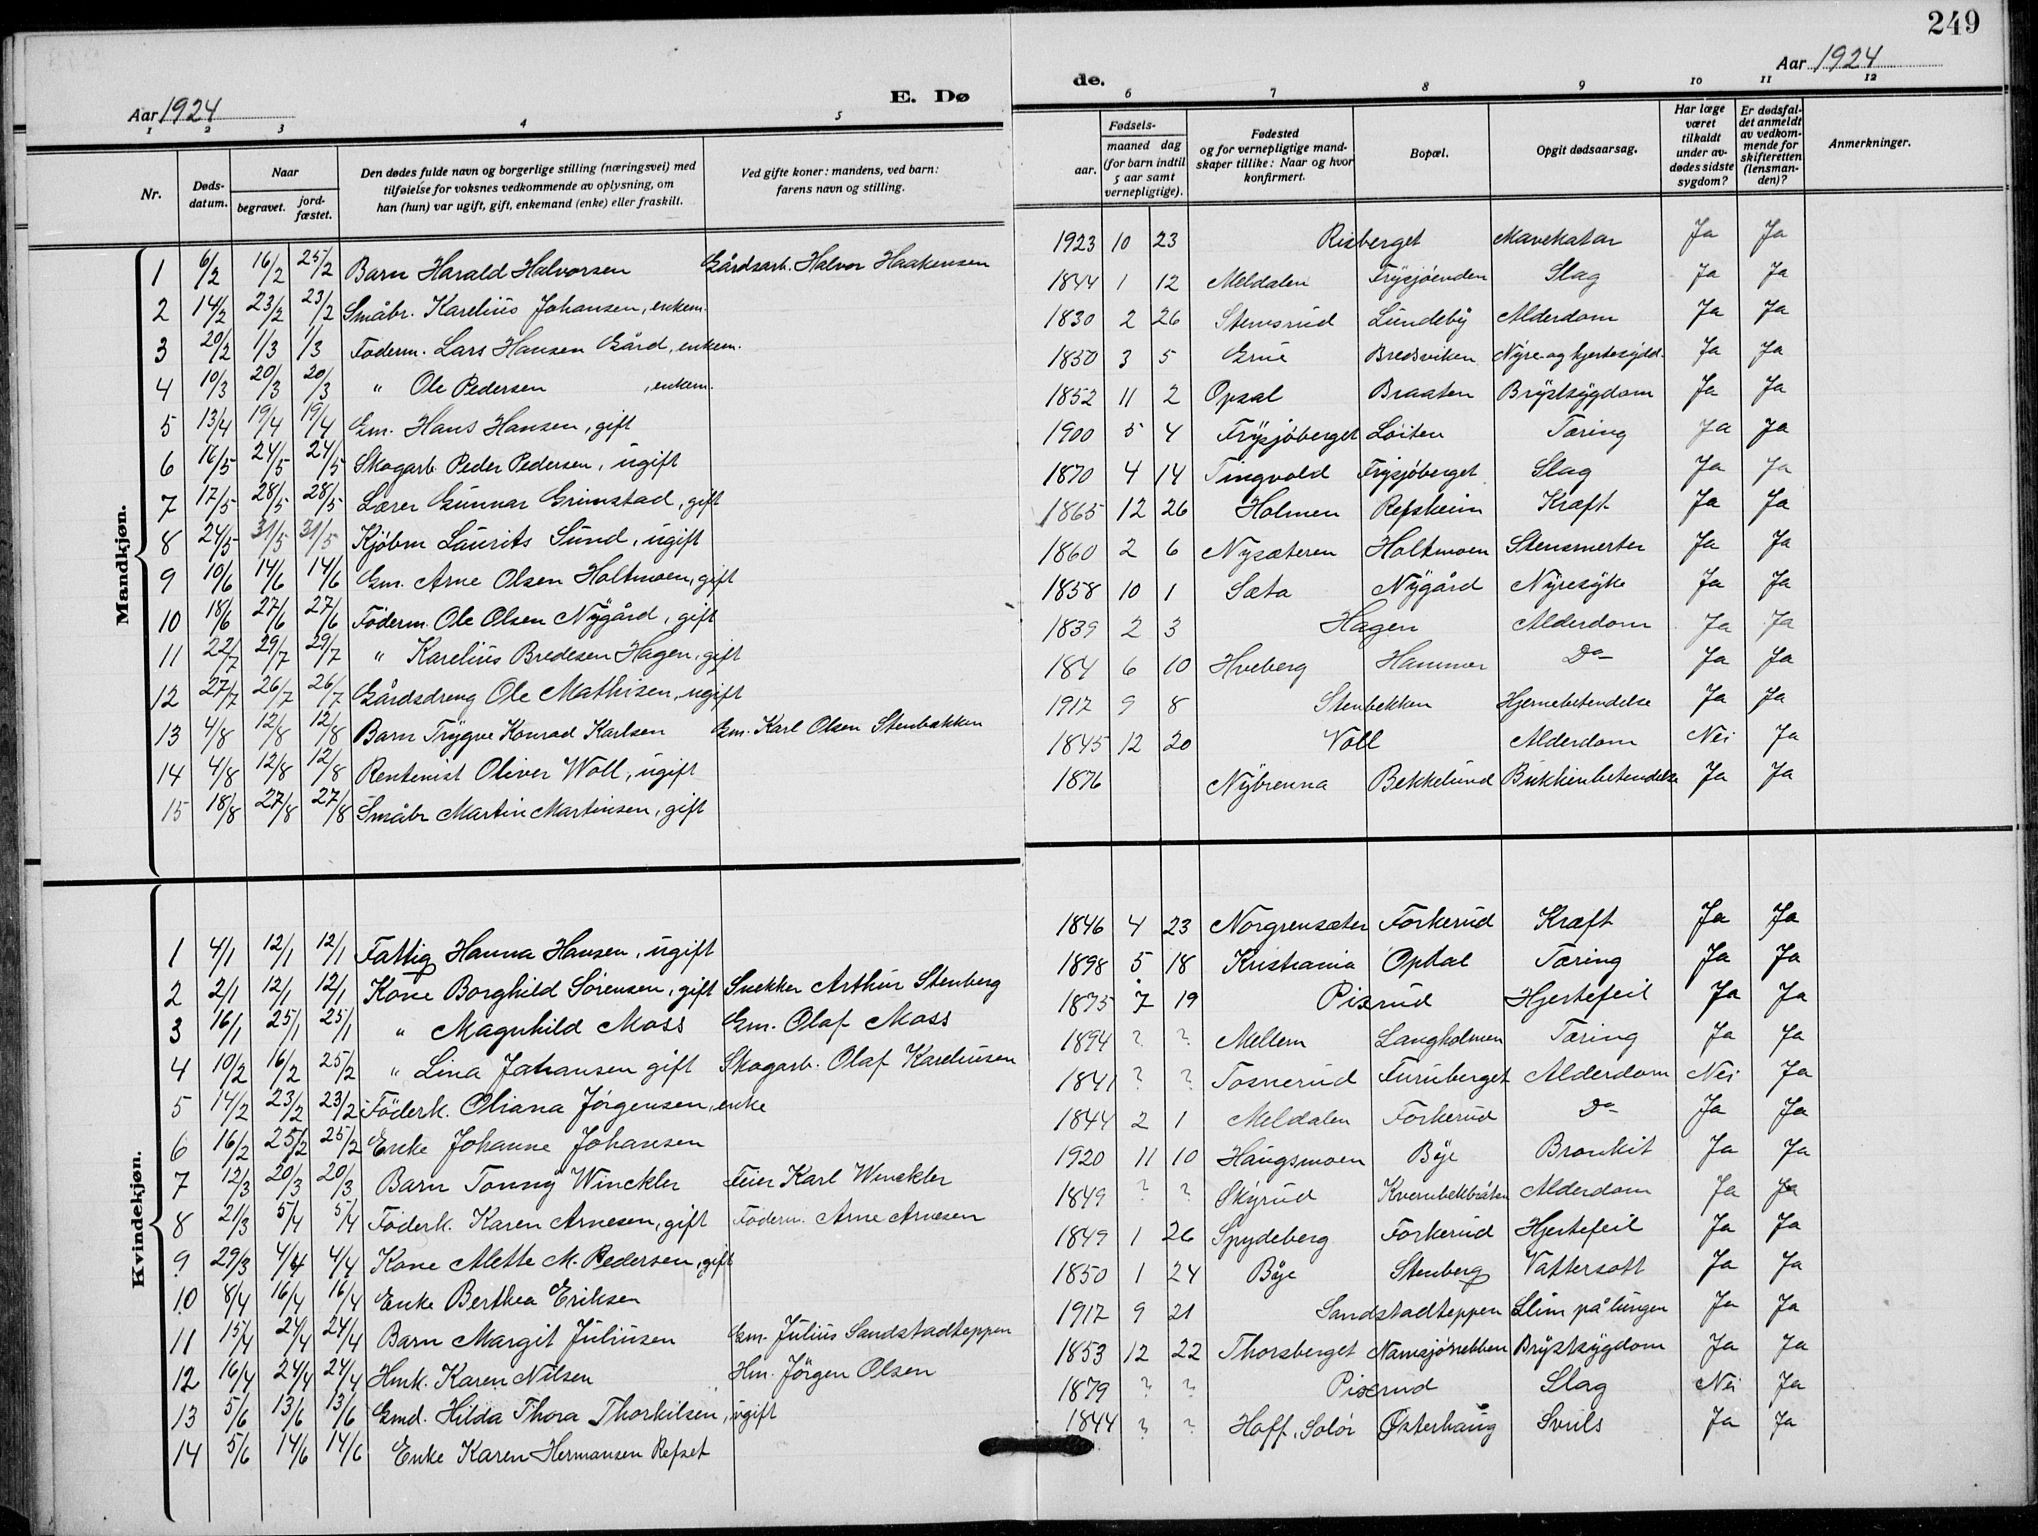 249
Aar 1924
E. Dø
de.
Aar 1924
1 2 3 4 5 6 7 8 9 10 11 12
Nr.
Døds-datum.
Naar
begravet.
jord-fæstet.
Den dødes fulde navn og borgerlige stilling (næringsvei) med
tilføielse for voksnes vedkommende av oplysning, om
han (hun) var ugift, gift, enkemand (enke) eller fraskilt.
Ved gifte koner: mandens, ved barn:
farens navn og stilling.
Fødsels-
aar.
maaned dag
(for barn indtil
5 aar samt
vernepligtige).
Fødested
og for vernepligtige mand-
skaper tillike: Naar og hvor
konfirmert.
Bopæl.
Opgit dødsaarsag.
Har læge
været
tilkaldt
under av-
dødes sidste
sygdom?
Er dødsfal-
det anmeldt
av vedkom-
mende for
skifteretten
(lensman-
den)?
Anmerkninger.
Mandkjøn.
1 6/2 16/2 25/2 Barn Harald Halvorsen Gårdsarb. Halvor Haakensen 1923 10 23 Risberget Mavekatar Ja Ja
2 14/2 23/2 23/2 Småbr. Karelius Johansen, enkem. 1844 1 12 Meldalen Frysjöenden Slag Ja Ja
3 20/2 1/3 1/3 Föderm. Lars Hansen Gård, enkem. 1830 2 26 Stemsrud Lundeby Alderdom Ja Ja
4 10/3 20/3 20/3 " Ole Pedersen, enkem. 1850 3 5 Grue Bredsviken Nyre- og hjertesygd. Ja Ja
5 13/4 19/4 19/4 Gm. Hans Hansen, gift 1852 11 2 Opsal Braaten Brystsygdom Ja Ja
6 16/5 24/5 24/5 Skogarb. Peder Pedersen, ugift 1900 5 4 Frysjöberget Löiten Tæring Ja Ja
7 17/5 28/5 28/5 Lærer Gunnar Grimstad, gift 1870 4 14 Tingvold Frysjöberget Slag Ja Ja
8 24/5 31/5 31/5 Kjöbm Laurits Sund, ugift 1865 12 26 Holmen Refsheim Kræft Ja Ja
9 10/6 14/6 14/6 Gm. Arne Olsen Holtmoen, gift 1860 2 6 Nysæteren Holtmoen Stensmerter Ja Ja
10 18/6 27/6 27/6 Föderm. Ole Olsen Nygård, gift 1858 10 1 Sæta Nygård Nyresyke Ja Ja
11 22/7 29/7 29/7 " Karelius Bredesen Hagen, gift 1839 2 3 Hagen Alderdom Ja Ja
12 27/7 26/7 26/7 Gårdsdreng Ole Mathisen, ugift 184 6 10 Hveberg Hammer Do Ja Ja
13 4/8 12/8 12/8 Barn Trygve Konrad Karlsen Gm. Karl Olsen Stenbækken 1917 9 8 Stenbekken Hjernebetendelse Ja Ja
14 4/8 12/8 12/8 Rentenist Oliver Woll, ugift 1845 12 20 Voll Alderdom Nei Ja
15 18/8 27/8 27/8 Småbr Martin Martinsen, gift 1876 Nybrenna Bekkelund Bukhinbetendelse Ja Ja
Kvindekjøn.
1 4/1 12/1 12/1 Fattig Hanna Hansen, ugift 1846 4 23 Norgrensæter Forkerud Kræft Ja Ja
2 2/1 12/1 12/1 Kone Borghild Sörensen, gift Snekker Arthur Stenberg 1898 5 18 Kristiania Opdal Tæring Ja Ja
3 16/1 25/1 25/1 " Magnhild Moss Gm. Olaf Moss 1875 7 19 Pisrud Hjertefeil Ja Ja
4 10/2 16/2 25/2 " Lina Johansen gift Skogarb. Olaf Kareliusen 1894 ? ? Mellem Langholmen Tæring Ja Ja
5 14/2 23/2 23/2 Föderk. Oliana Jörgensen, enke 1841 ? ? Tosnerud Furuberget Alderdom Nei Ja
6 16/2 25/2 25/2 Enke Johanne Johansen 1844 2 1 Meldalen Forkerud Do Ja Ja
7 12/3 20/3 20/3 Barn Tonny Winckler Feier Karl Winckler 1920 11 10 Haugsmoen Bye Bronkit Ja Ja
8 21/3 5/4 5/4 Föderk. Karen Arnesen, gift Föderm. Arne Arnesen 1849 ? ? Skyrud Kvernbekbråten Alderdom Ja Ja
9 29/3 4/4 4/4 Kone Mette M. Pedersen, gift 1849 1 26 Spydeberg Forkerud Hjertefeil Ja Ja
10 8/4 16/4 16/4 Enke Berthea Eriksen 1850 1 24 Bye Stenberg Vattersott Ja Ja
11 15/4 24/4 24/4 Barn Margit Juliusen Gm. Julius Sandstadteppen 1917 9 21 Sandstadteppen Slim på lungen Ja Ja
12 16/4 24/4 24/4 Hmk. Karen Nilsen Hm. Jörgen Olsen 1853 12 22 Thorsberget Namsjösnebben Brystsygdom Ja Ja
13 5/6 13/6 13/6 Gmd. Hilda Thora Thorkilsen, ugift 1879 ? ? Pisrud Slag Nei Ja
14 5/6 14/6 14/6 Enke Karen Hermansen Refset 1844 ? ? Hoff, Solör Østerhaug Svuls Ja Ja